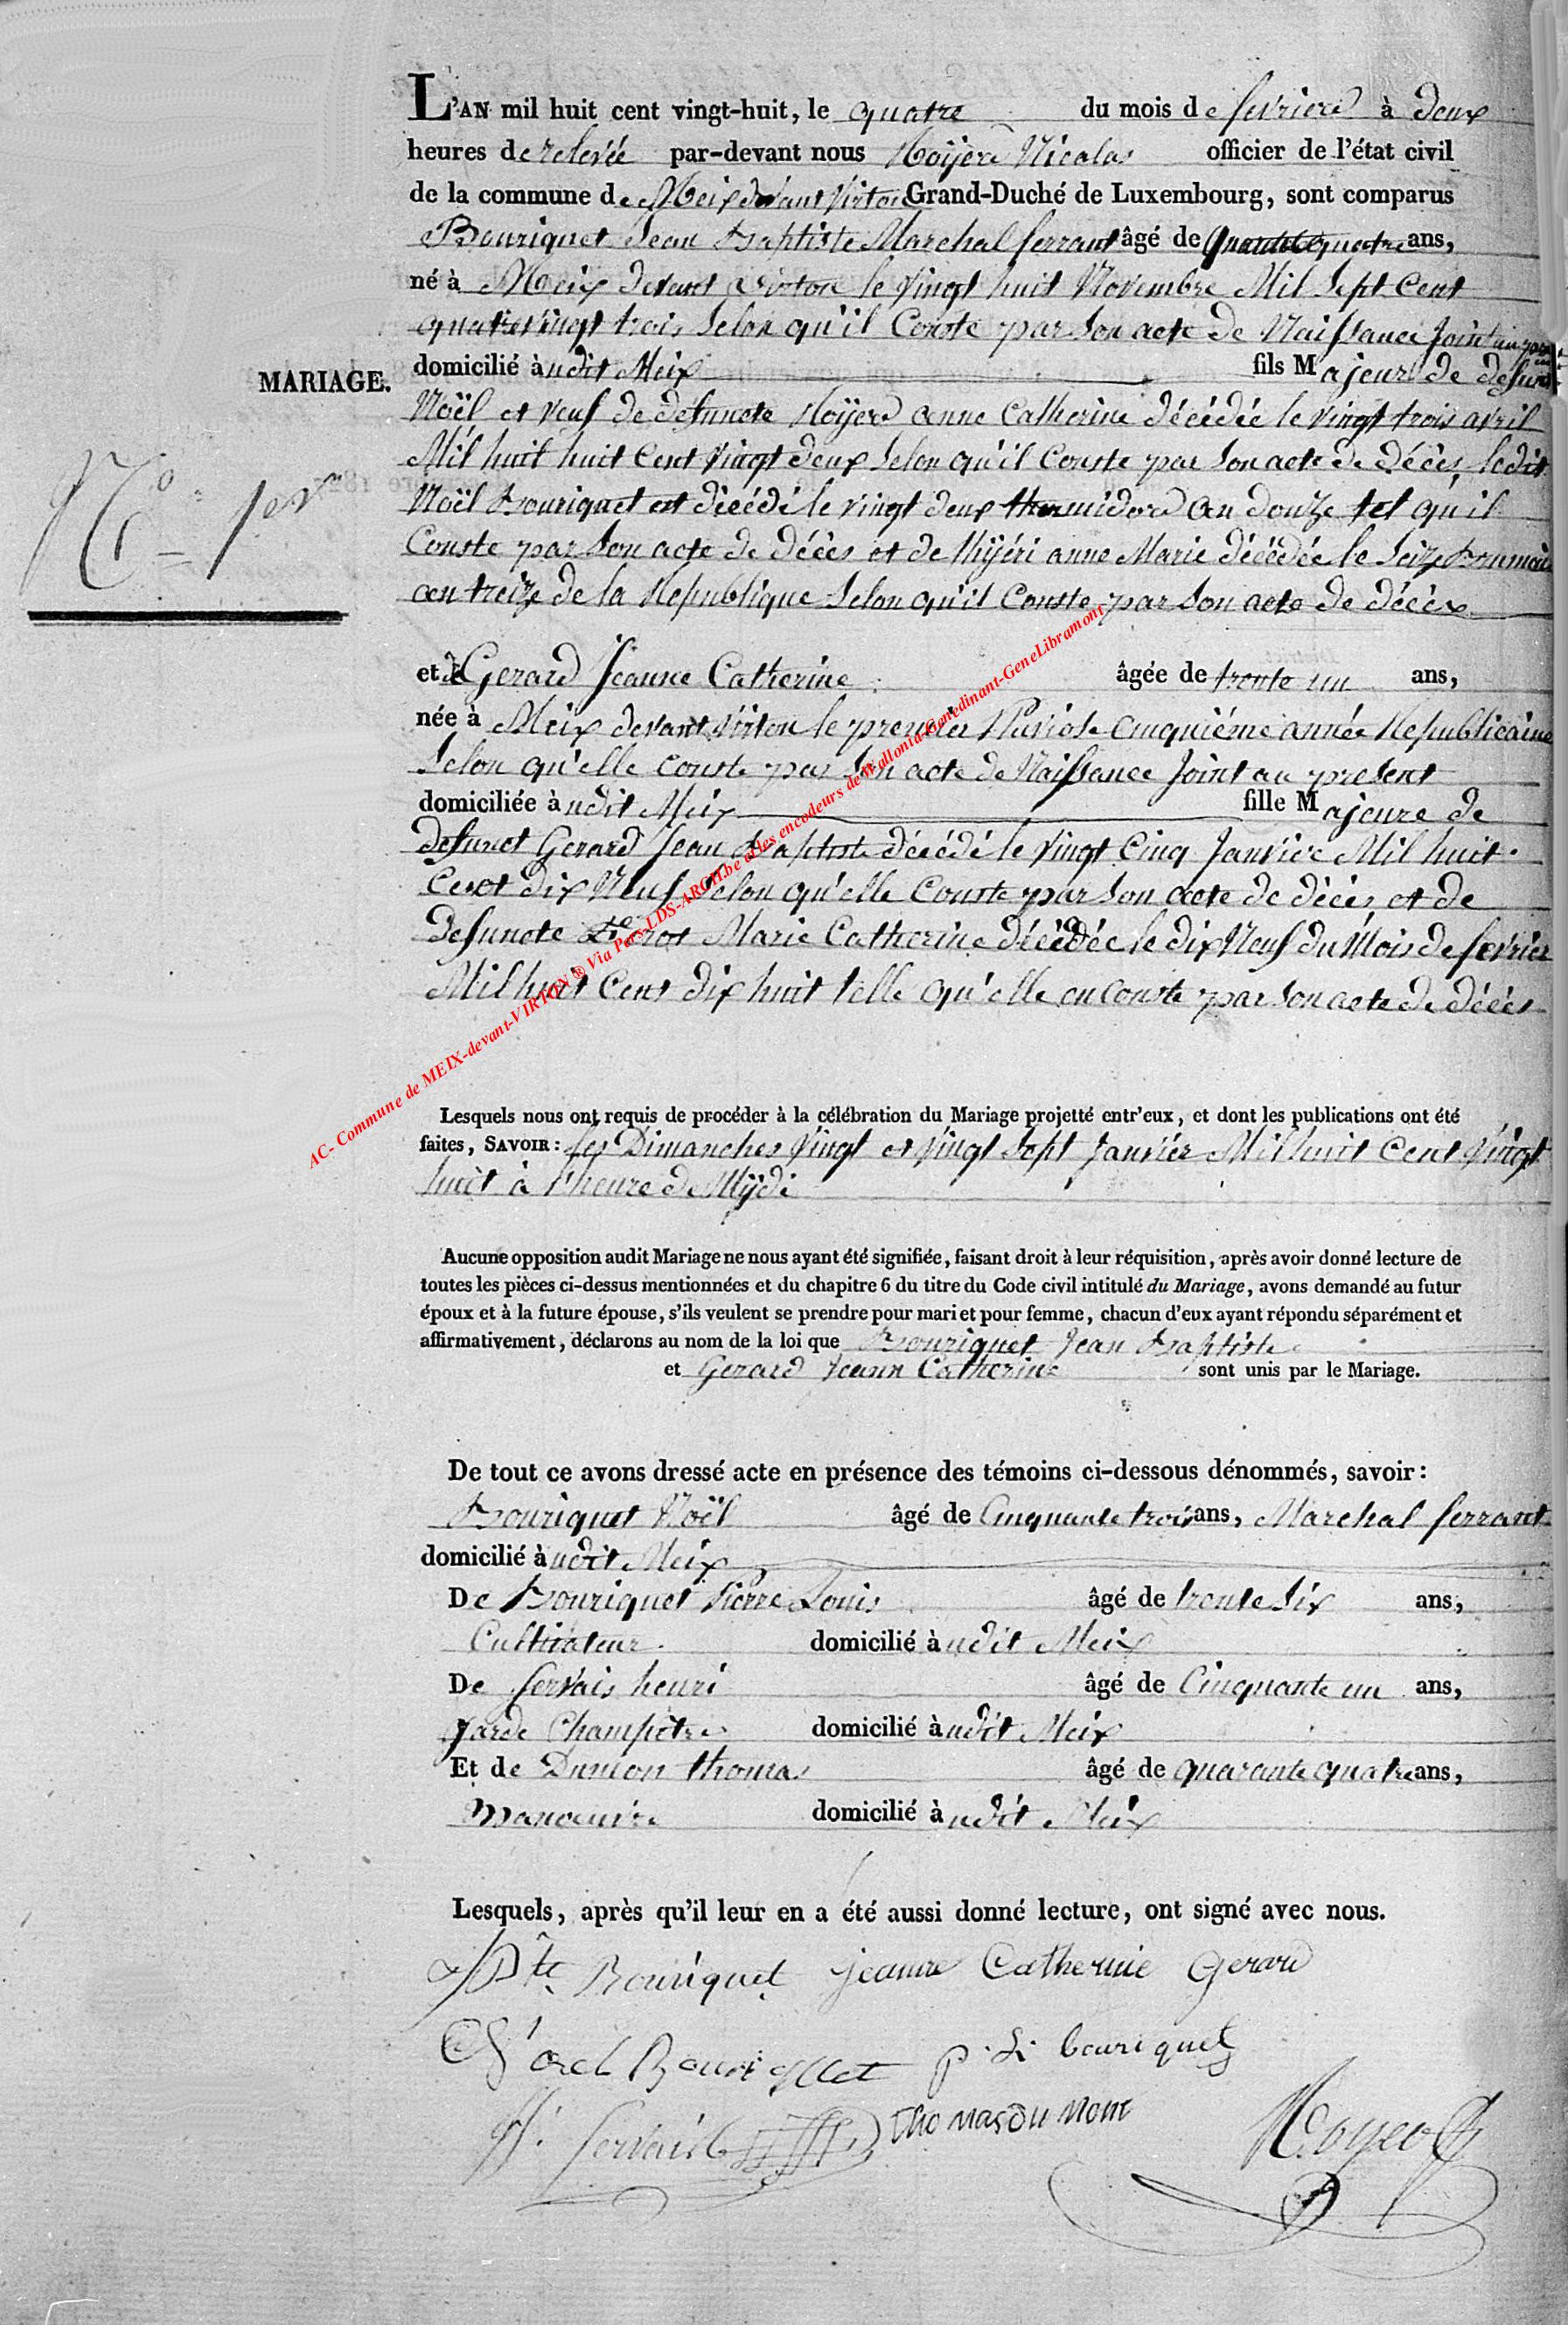 L'AN mil huit cent vingt-huit, le quatre du mois de fevrier à deux
heures de relevée par-devant nous Noÿere Nicolas officier de l'état civil
de la commune de Meix devant Virton Grand-Duché de Luxembourg, sont comparus
Bouriquet Jean Baptiste Marechal ferrant âgé de quarante quatre ans,
né à Meix devant Virton le vingt huit Novembre Mil Sept Cent
quatre vingt trois selon qu'il Conste par son acte de Naissance Joint au
MARIAGE.
domicilié à udit Meix fils Majeur de defunt
Noël et veuf de defuncte Noÿere anne Catherine décédée le vingt trois avril
Mil huit huit Cent vingt deux selon qu'il Conste par son acte de décès, ledit
N° 1er
Noël Bouriquet est décédé le vingt deux thermidore an douze tel qu'il
Conste par son acte de décès et de Thÿéri anne Marie décédée le seize
an treize de la Republique selon qu'il Conste par son acte de décès
et de Gerard Jeanne Catherine âgée de trente un ans,
née à Meix devant Virton le premier Pluviose Cinquiéme année Republicaine
selon qu'elle Conste par son acte de Naissance Joint au present
domiciliée à udit Meix fille Majeure de
defunct Gerard Jean Baptiste décédé le vingt Cinq Janvier Mil huit
Cent dix Neuf selon qu'elle Conste par son acte de décès et de
defuncte Marie Catherine décédée le dix Neuf du Mois de fevrier
Mil huit Cent dix huit telle qu'elle en Conste par son acte de décès
AC- Commune de MEIX-devant-VIRTON ® Via Pers-LDS-ARCH.be et les encodeurs de Wallonia-Genedinant-GeneLibramont
Lesquels nous ont requis de procéder à la célébration du Mariage projetté entr'eux, et dont les publications ont été
faites, SAVOIR: les Dimanches vingt et vingt sept Janvier Mil huit Cent vingt
huit à l'heure de Mÿdi
Aucune opposition audit Mariage ne nous ayant été signifiée, faisant droit à leur réquisition, après avoir donné lecture de
toutes les pièces ci-dessus mentionnées et du chapitre 6 du titre du Code civil intitulé du Mariage, avons demandé au futur
époux et à la future épouse, s'ils veulent se prendre pour mari et pour femme, chacun d'eux ayant répondu séparément et
affirmativement, déclarons au nom de la loi que Bouriquet Jean Baptiste
et Gerard Jeann Catherine sont unis par le Mariage.
De tout ce avons dressé acte en présence des témoins ci-dessous dénommés, savoir:
Bouriquet Noël âgé de Cinquante trois ans, Marechal ferrant
domicilié à udit Meix
De Bouriquet Pierre Louis âgé de trente six ans,
Cultivateur domicilié à udit Meix
De Servais henri âgé de Cinquante un ans,
garde Champêtre domicilié à udit Meix
Et de Dumon thomas âgé de quarante quatre ans,
Manoeuvre domicilié à udit Meix
Lesquels, après qu'il leur en a été aussi donné lecture, ont signé avec nous.
Bte Bouriquet jeanne Catherine Gerard
Noel Bouriquet p. L. bouriquet
H. Servais thomas du Mont Noyer